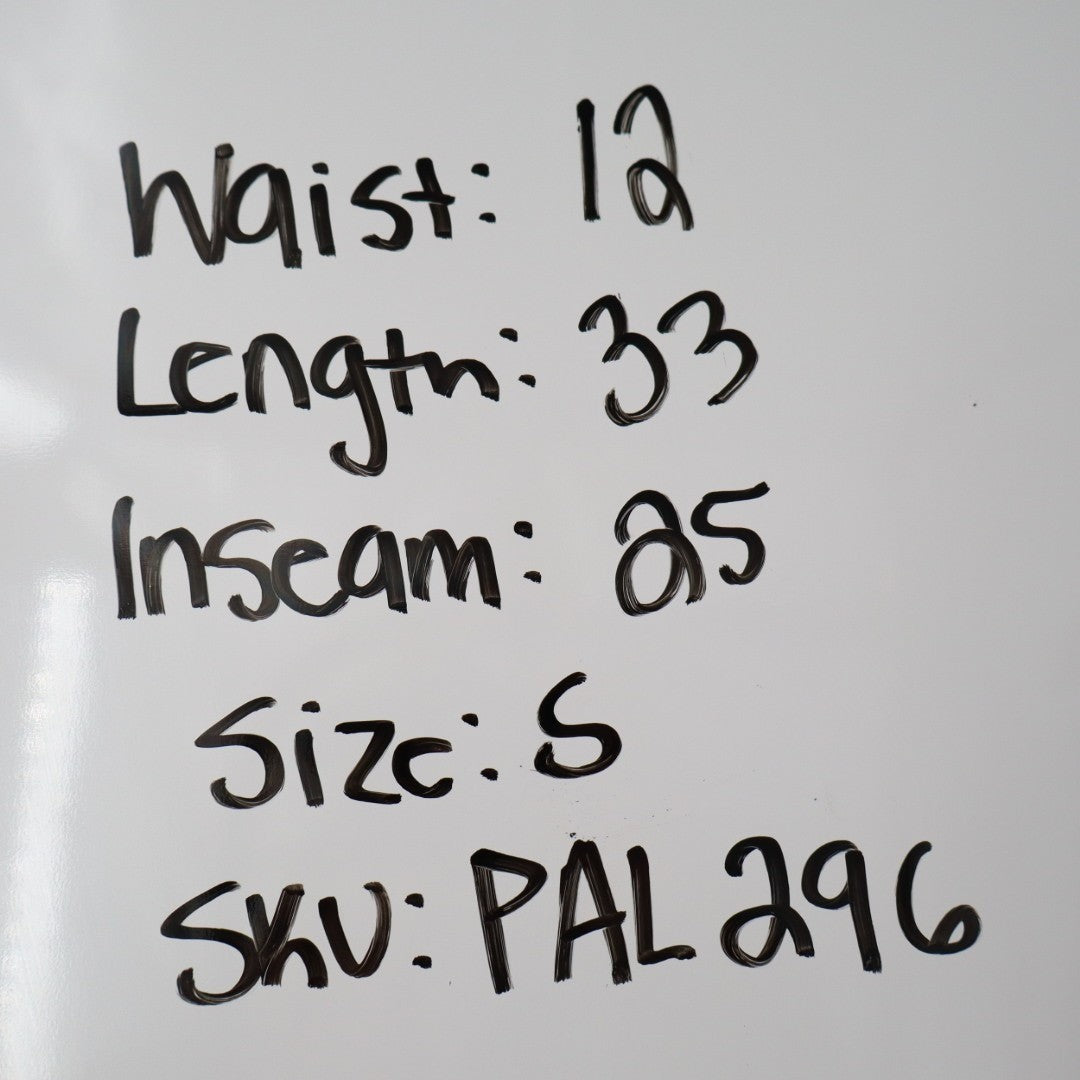 Waist: 12
Length: 33
Inseam: 25
Size: S
SKU: PAL296